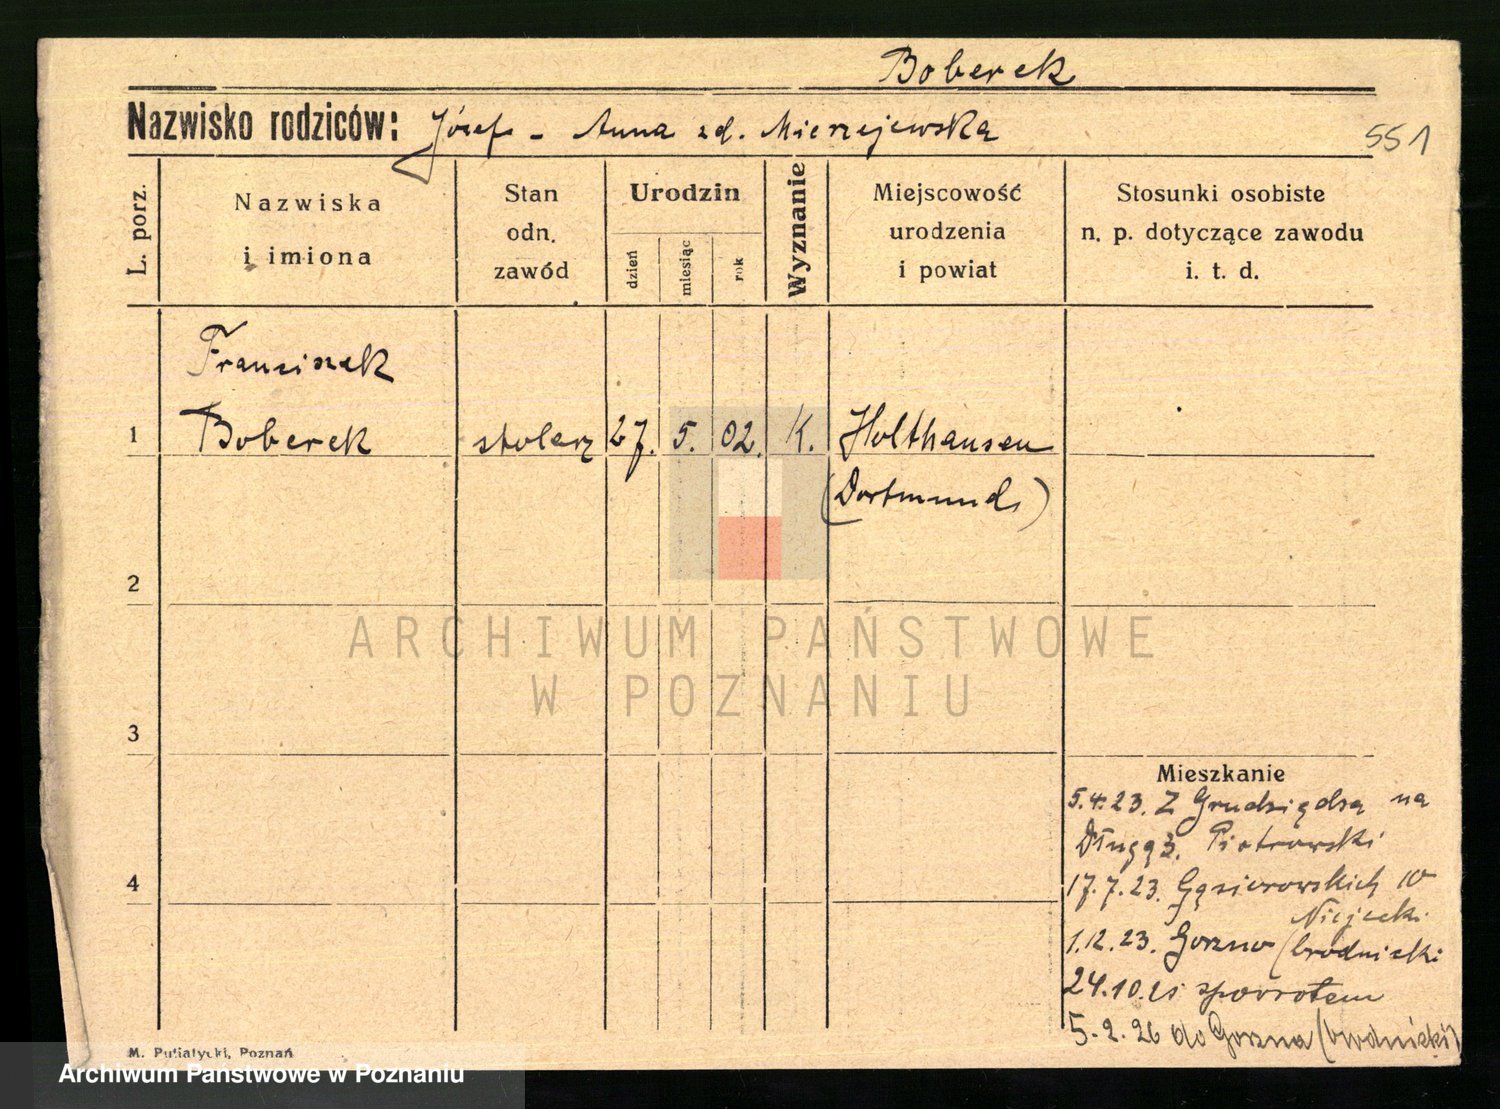 Boberek
Nazwisko rodziców: Józef - Anna zd. Mierzejewska
551
L. porz.
Nazwiska
i imiona
Stan
odn.
zawód
Urodzin
dzień
miesiąc
rok
Wyznanie
Miejscowość
urodzenia
i powiat
Stosunki osobiste
n. p. dotyczące zawodu
i. t. d.
Franciszek
1 Boberek stolarz 27. 5. 02. K. Holthausen
(Dortmund)
2
ARCHIWUM PAŃSTWOWE
W POZNANIU
3
Mieszkanie
5.4.23. Z Grudziądza na
Długą 3. Piotrowski
4
17.7.23. Gąsiorowskich 10
1.12.23. Gorzno (brodnicki
24.10.25 spowrotem
5.2.26 do Gorzna (brodnicki)
M. Putiatycki, Poznań
Archiwum Państwowe w Poznaniu